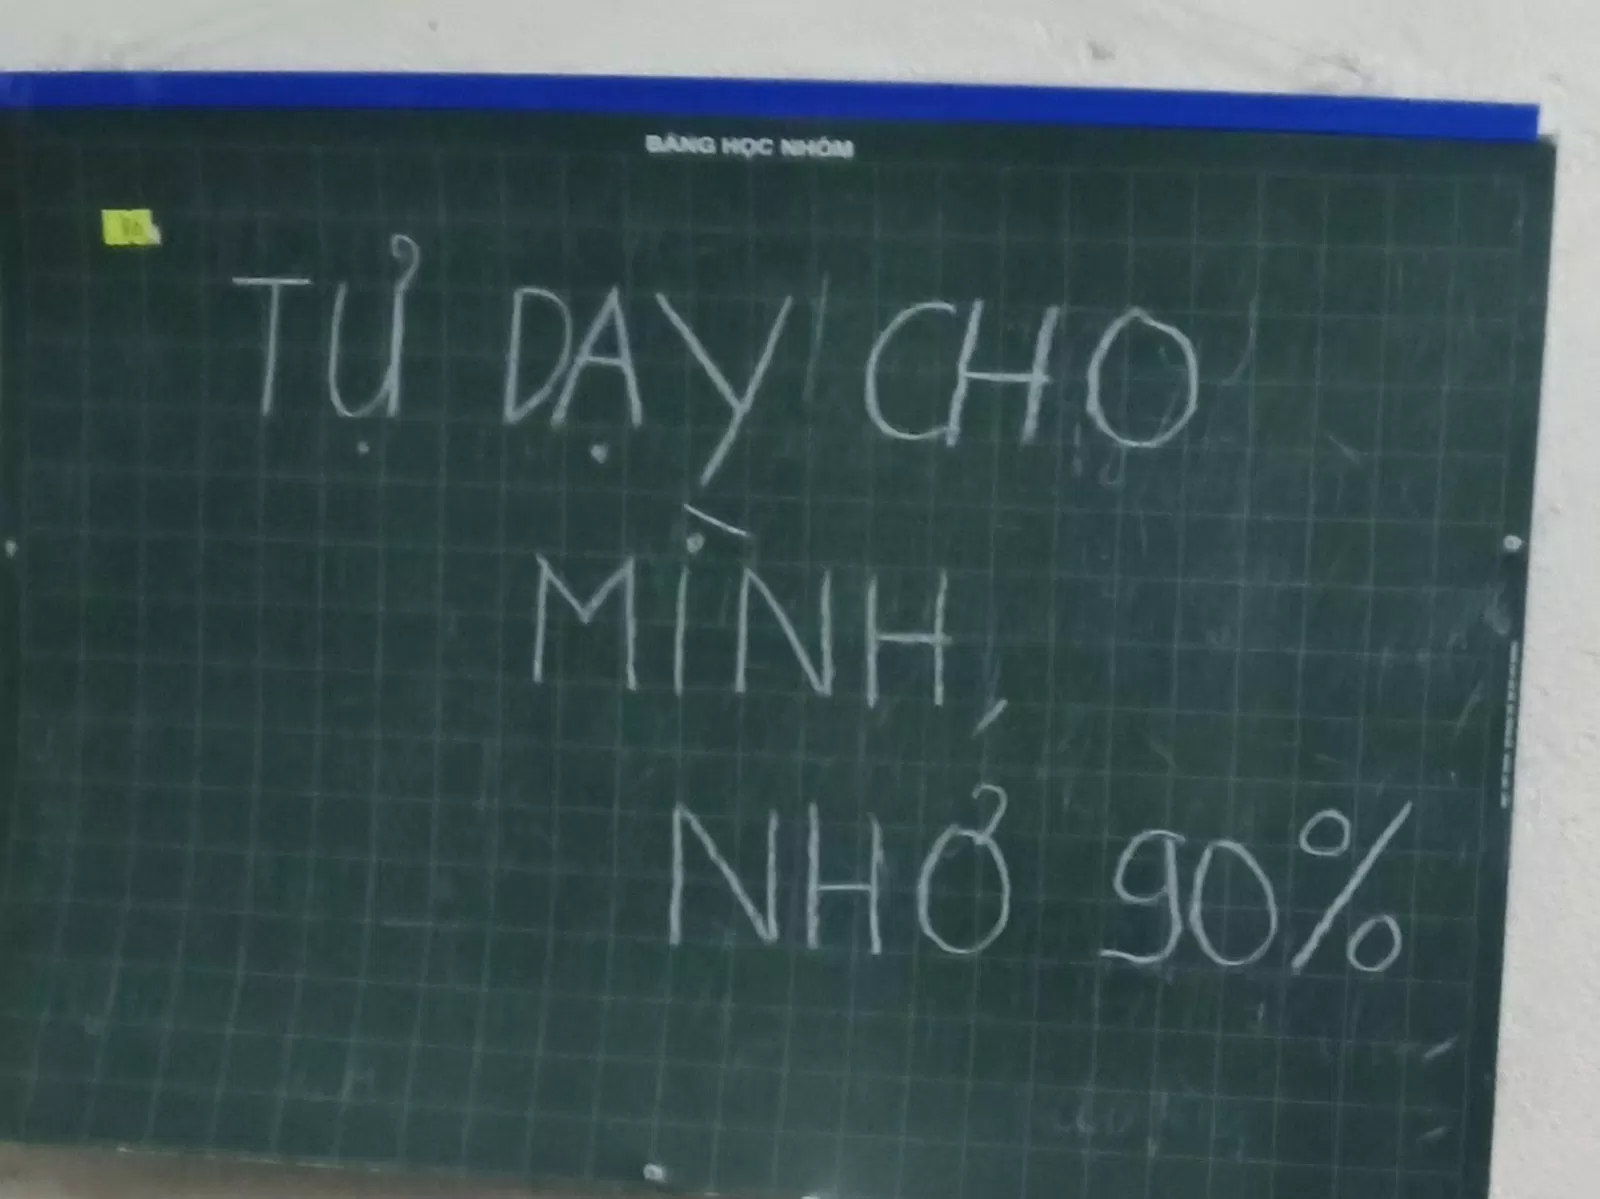 BẢNG HỌC NHÓM
TỰ DẠY CHO
MÌNH,
NHỚ 90%